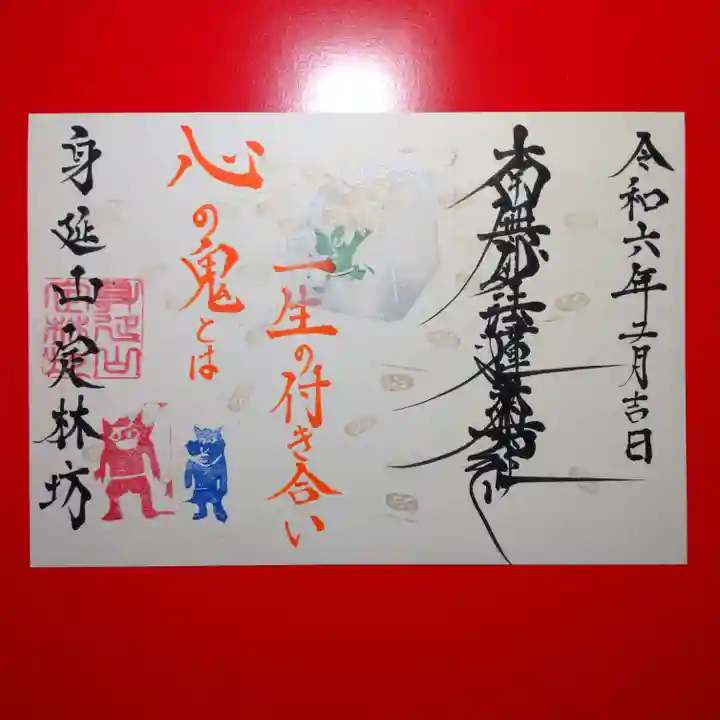 令和六年二月吉日
南無妙法蓮華経
一生の付き合い
心の鬼とは
身延山定林坊
身延山
定林坊